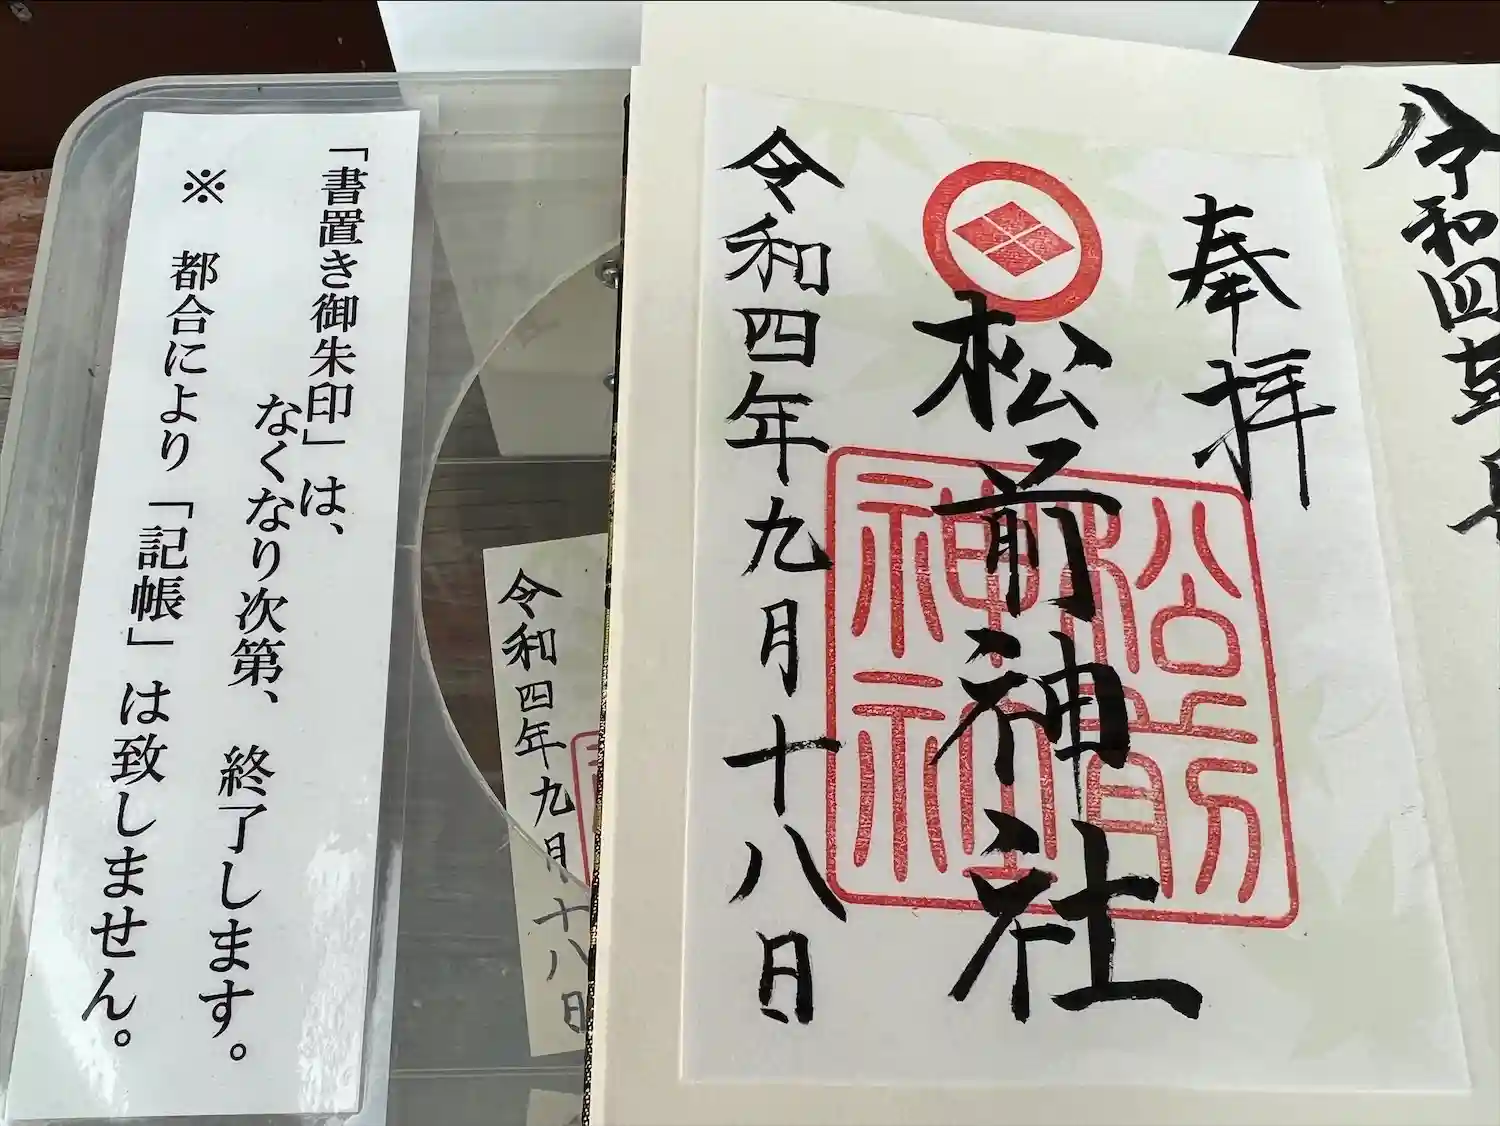 「書置き御朱印」は、
なくなり次第、終了します。
※ 都合により「記帳」は致しません。
令和四年九月十八日
奉拝
松前神社
令和四年九月十八日
松前
神社
令和四年